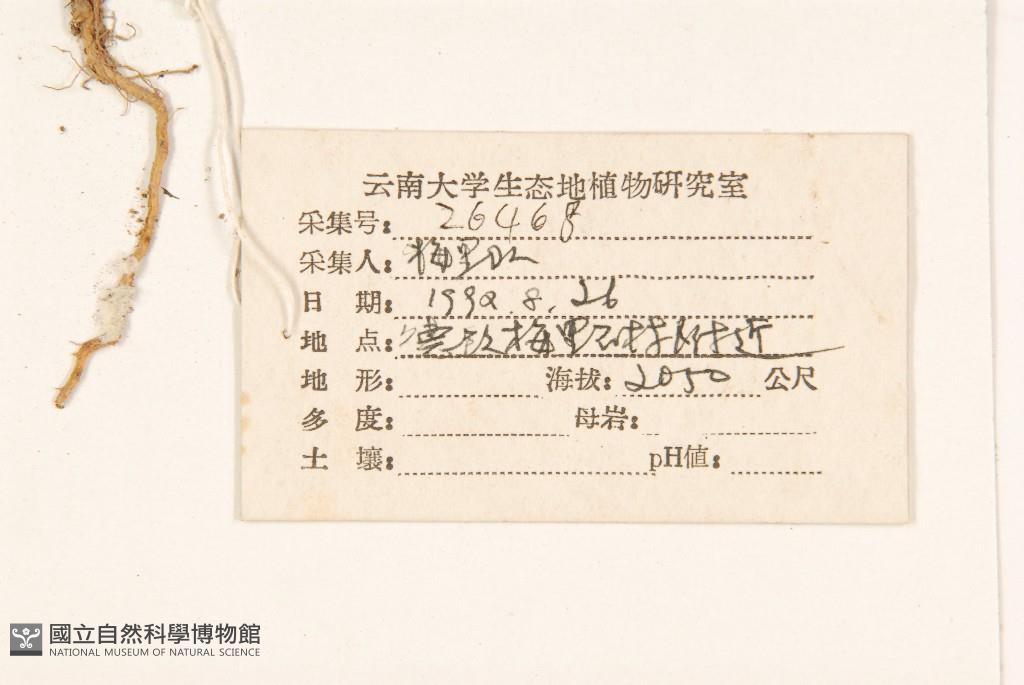 云南大学生态地植物研究室
采集号: 26468
采集人: 梅里队
日 期: 1990.8.26
地 点: 德钦梅里石村附近
地 形: 海拔: 2050 公尺
多 度: 母岩:
土 壤: pH値:
國立自然科學博物館
NATIONAL MUSEUM OF NATURAL SCIENCE